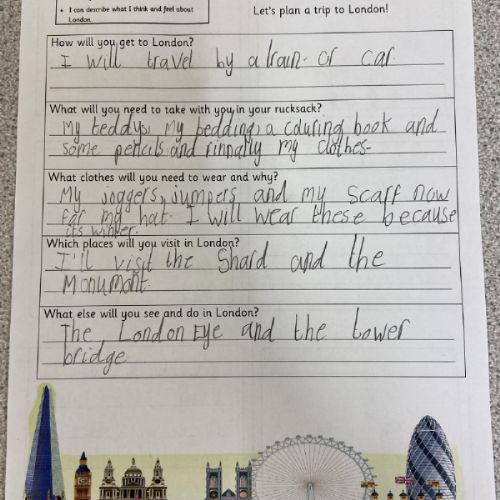 • I can describe what I think and feel about
London.
Let's plan a trip to London!
How will you get to London?
I will travel by a train or car.
What will you need to take with you in your rucksack?
My teddys, my bedding, a couring book and
some pencils and finnally my clothes.
What clothes will you need to wear and why?
My joggers, jumpers and my scarf now
for my hat. I will wear these because
its winter.
Which places will you visit in London?
I'll visit the Shard and the
Monumant.
What else will you see and do in London?
The London Eye and the tower
bridge